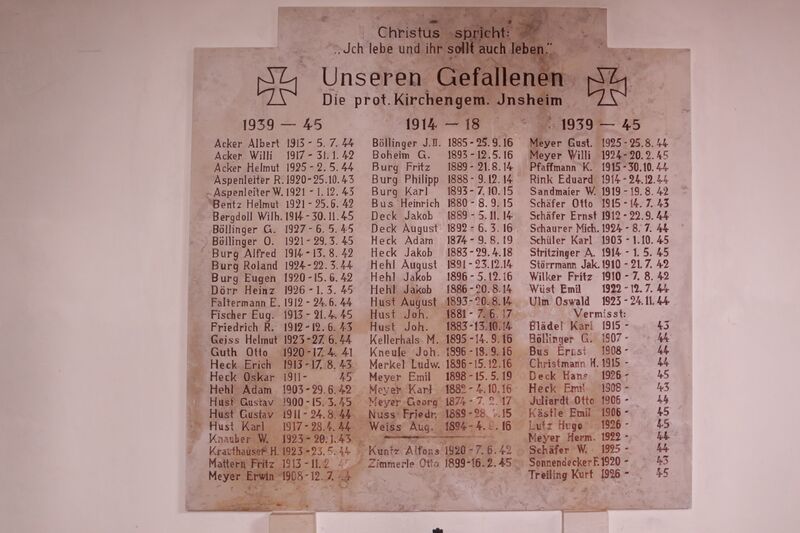 Christus spricht:
„Jch lebe und ihr sollt auch leben."
Unseren Gefallenen
Die prot. Kirchengem. Jnsheim
1939 — 45
Acker Albert 1913 - 5. 7. 44
Acker Willi 1917 - 31. 1. 42
Acker Helmut 1925 - 2. 5. 44
Aspenleiter R. 1920-25.10.43
Aspenleiter W. 1921 - 1. 12. 43
Bentz Helmut 1921 - 25. 6. 42
Bergdoll Wilh. 1914 - 30. 11. 45
Böllinger G. 1927 - 6. 5. 45
Böllinger O. 1921 - 29. 3. 45
Burg Alfred 1914 - 13. 8. 42
Burg Roland 1924 - 22. 3. 44
Burg Eugen 1920 - 15. 6. 42
Dörr Heinz 1926 - 1. 3. 45
Faltermann E. 1912 - 24. 6. 44
Fischer Eug. 1913 - 21. 4. 45
Friedrich R. 1912 - 12. 6. 43
Geiss Helmut 1923 - 27. 6. 44
Guth Otto 1920 - 17. 4. 41
Heck Erich 1913 - 17. 8. 43
Heck Oskar 1911 - 45
Hehl Adam 1903 - 29. 6. 42
Hust Gustav 1900 - 15. 3. 45
Hust Gustav 1911 - 24. 8. 44
Hust Karl 1917 - 28. 4. 44
Knauber W. 1923 - 20. 1. 43
Krauthäuser H. 1923 - 23. 5. 44
Mattern Fritz 1913 - 11. 2
Meyer Erwin 1908 - 12. 7.
1914 — 18
Böllinger J.II. 1885 - 25. 9. 16
Boheim G. 1893 - 12. 5. 16
Burg Fritz 1889 - 21. 8. 14
Burg Philipp 1888 - 9. 12. 14
Burg Karl 1893 - 7. 10. 15
Bus Heinrich 1880 - 8. 9. 15
Deck Jakob 1889 - 5. 11. 14
Deck August 1892 - 6. 3. 16
Heck Adam 1874 - 9. 8. 19
Heck Jakob 1883 - 29. 4. 18
Hehl August 1891 - 23. 12. 14
Hehl Jakob 1896 - 5. 12. 16
Hehl Jakob 1886 - 20. 8. 14
Hust August 1893 - 20. 8. 14
Hust Joh. 1881 - 7. 6. 17
Hust Joh. 1883 - 13. 10. 14
Kellerhals M. 1895 - 14. 9. 16
Kneule Joh. 1896 - 18. 9. 16
Merkel Ludw. 1896 - 15. 12. 16
Meyer Emil 1898 - 15. 5. 19
Meyer Karl - 4. 10. 16
Meyer Georg 1874 - 7. 17
Nuss Friedr. 1889 - 28. 15
Weiss Aug. 1894 - 4. 16
Kuntz Alfons 1920 - 7. 6. 42
Zimmerle Otto 1899 - 16. 2. 45
1939 — 45
Meyer Gust. 1925 - 25. 8. 44
Meyer Willi 1924 - 20. 2. 45
Pfaffmann K. 1915 - 30. 10. 44
Rink Eduard 1914 - 24. 12. 44
Sandmaier W. 1919 - 19. 8. 42
Schäfer Otto 1915 - 14. 7. 43
Schäfer Ernst 1912 - 22. 9. 44
Schaurer Mich. 1924 - 8. 7. 44
Schüler Karl 1903 - 1. 10. 45
Stritzinger A. 1914 - 1. 5. 45
Störrmann Jak. 1910 - 21. 7. 42
Wilker Fritz 1910 - 7. 8. 42
Wüst Emil 1922 - 12. 7. 44
Ulm Oswald 1923 - 24. 11. 44
Vermisst:
Blädel Karl 1915 - 43
Böllinger G. 1907 - 44
Bus Ernst 1908 - 44
Christmann H. 1915 - 44
Deck Hans 1926 - 45
Heck Emil 1908 - 43
Juliardt Otto 1906 - 44
Kästle Emil 1906 - 45
Lutz Hugo 1926 - 45
Meyer Herm. 1922 - 44
Schäfer W. 1925 - 44
Sonnendecker F. 1920 - 43
Treiling Kurt 1926 - 45